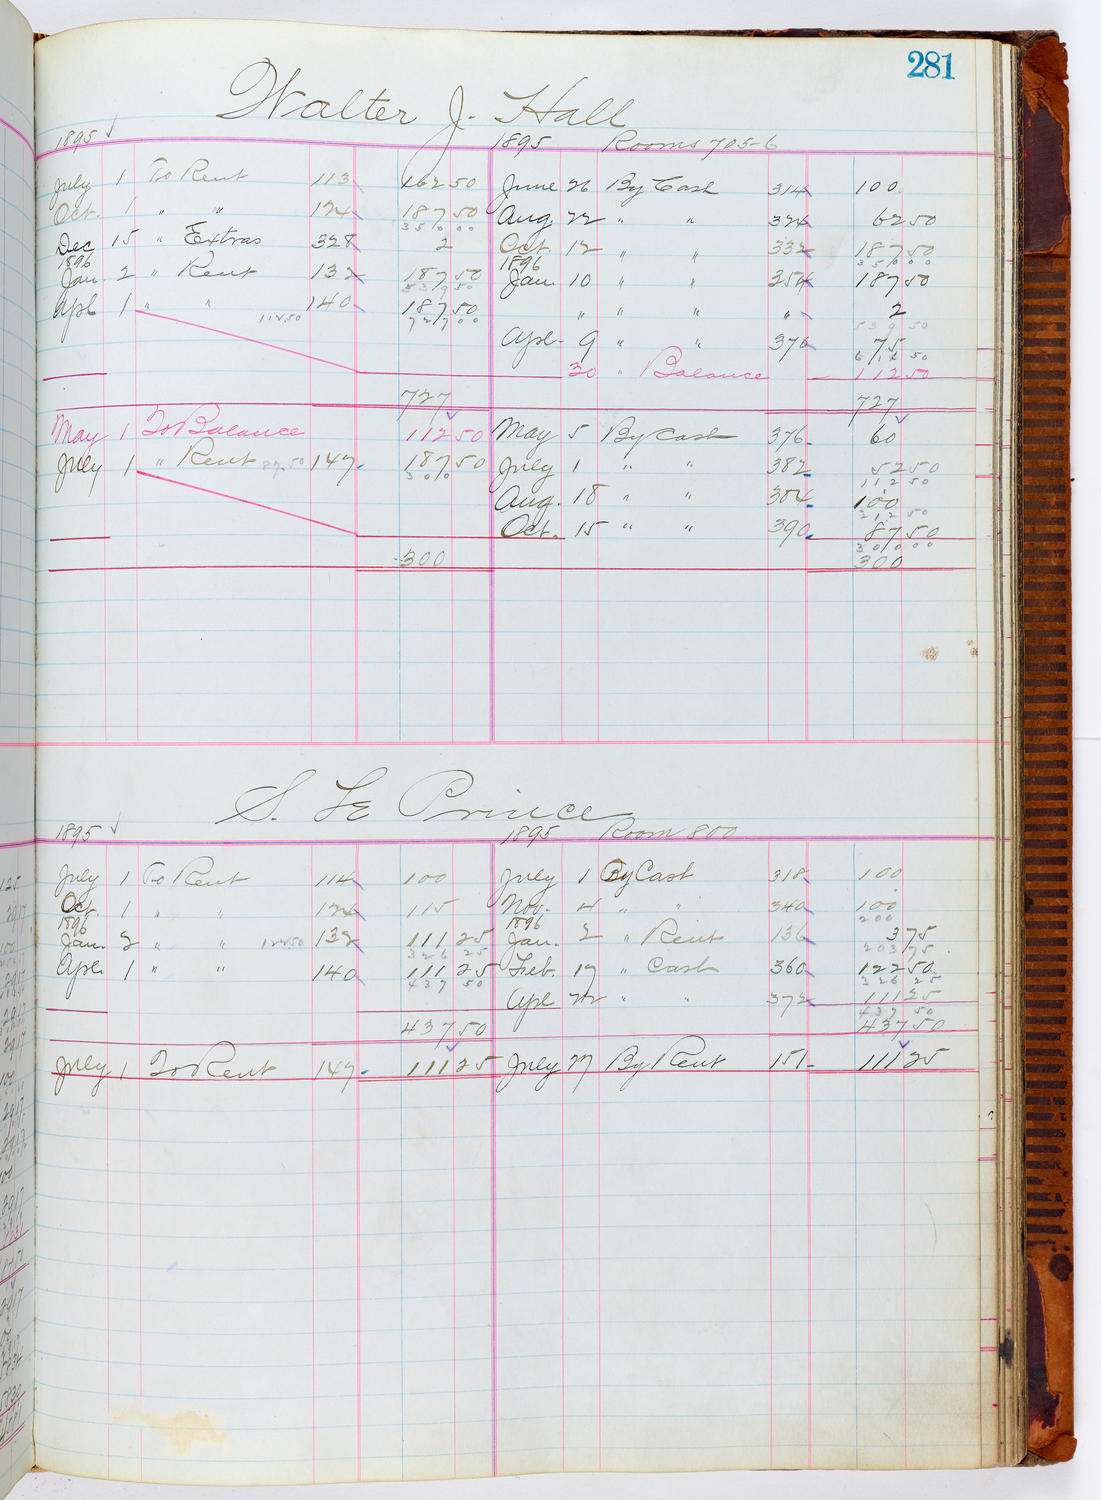 281
Walter J. Hall
1895 1895 Rooms 705-6
July 1 To Rent 113 162 50 June 26 By Cash 314 100
Oct. 1 " " 124 187 50 Aug. 22 " " 324 62 50
350 00
Dec 15 " Extras 328 2 Oct. 12 " " 332 187 50
1896 1896 350 00
Jan. 2 " Rent 132 187 50 Jan. 10 " " 354 187 50
539 50
Apl. 1 " " 140 187 50 " " " " 2
112 50 727 00 539 50
Apl. 9 " " 376 75
614 50
30 " Balance 112 50
727 727
May 1 To Balance 112 50 May 5 By Cash 376 60
July 1 " Rent 87.50 147 187 50 July 1 " " 382 52 50
300 112 50
Aug. 18 " " 384 100
212 50
Oct. 15 " " 390 87 50
300 00
300 300
S. Le Prince
1895 1895 Room 800
July 1 To Rent 114 100 July 1 By Cash 318 100
Oct. 1 " " 124 115 Nov. 4 " " 340 100
1896 1896 200
Jan. 2 " " 122 50 132 111 25 Jan. 2 " Rent 136 3 75
326 25 203 75
Apl. 1 " " 140 111 25 Feb. 17 " Cash 360 122 50
437 50 326 25
Apl 22 " " 372 111 25
437 50
437 50 437 50
July 1 To Rent 147 111 25 July 27 By Rent 151 111 25